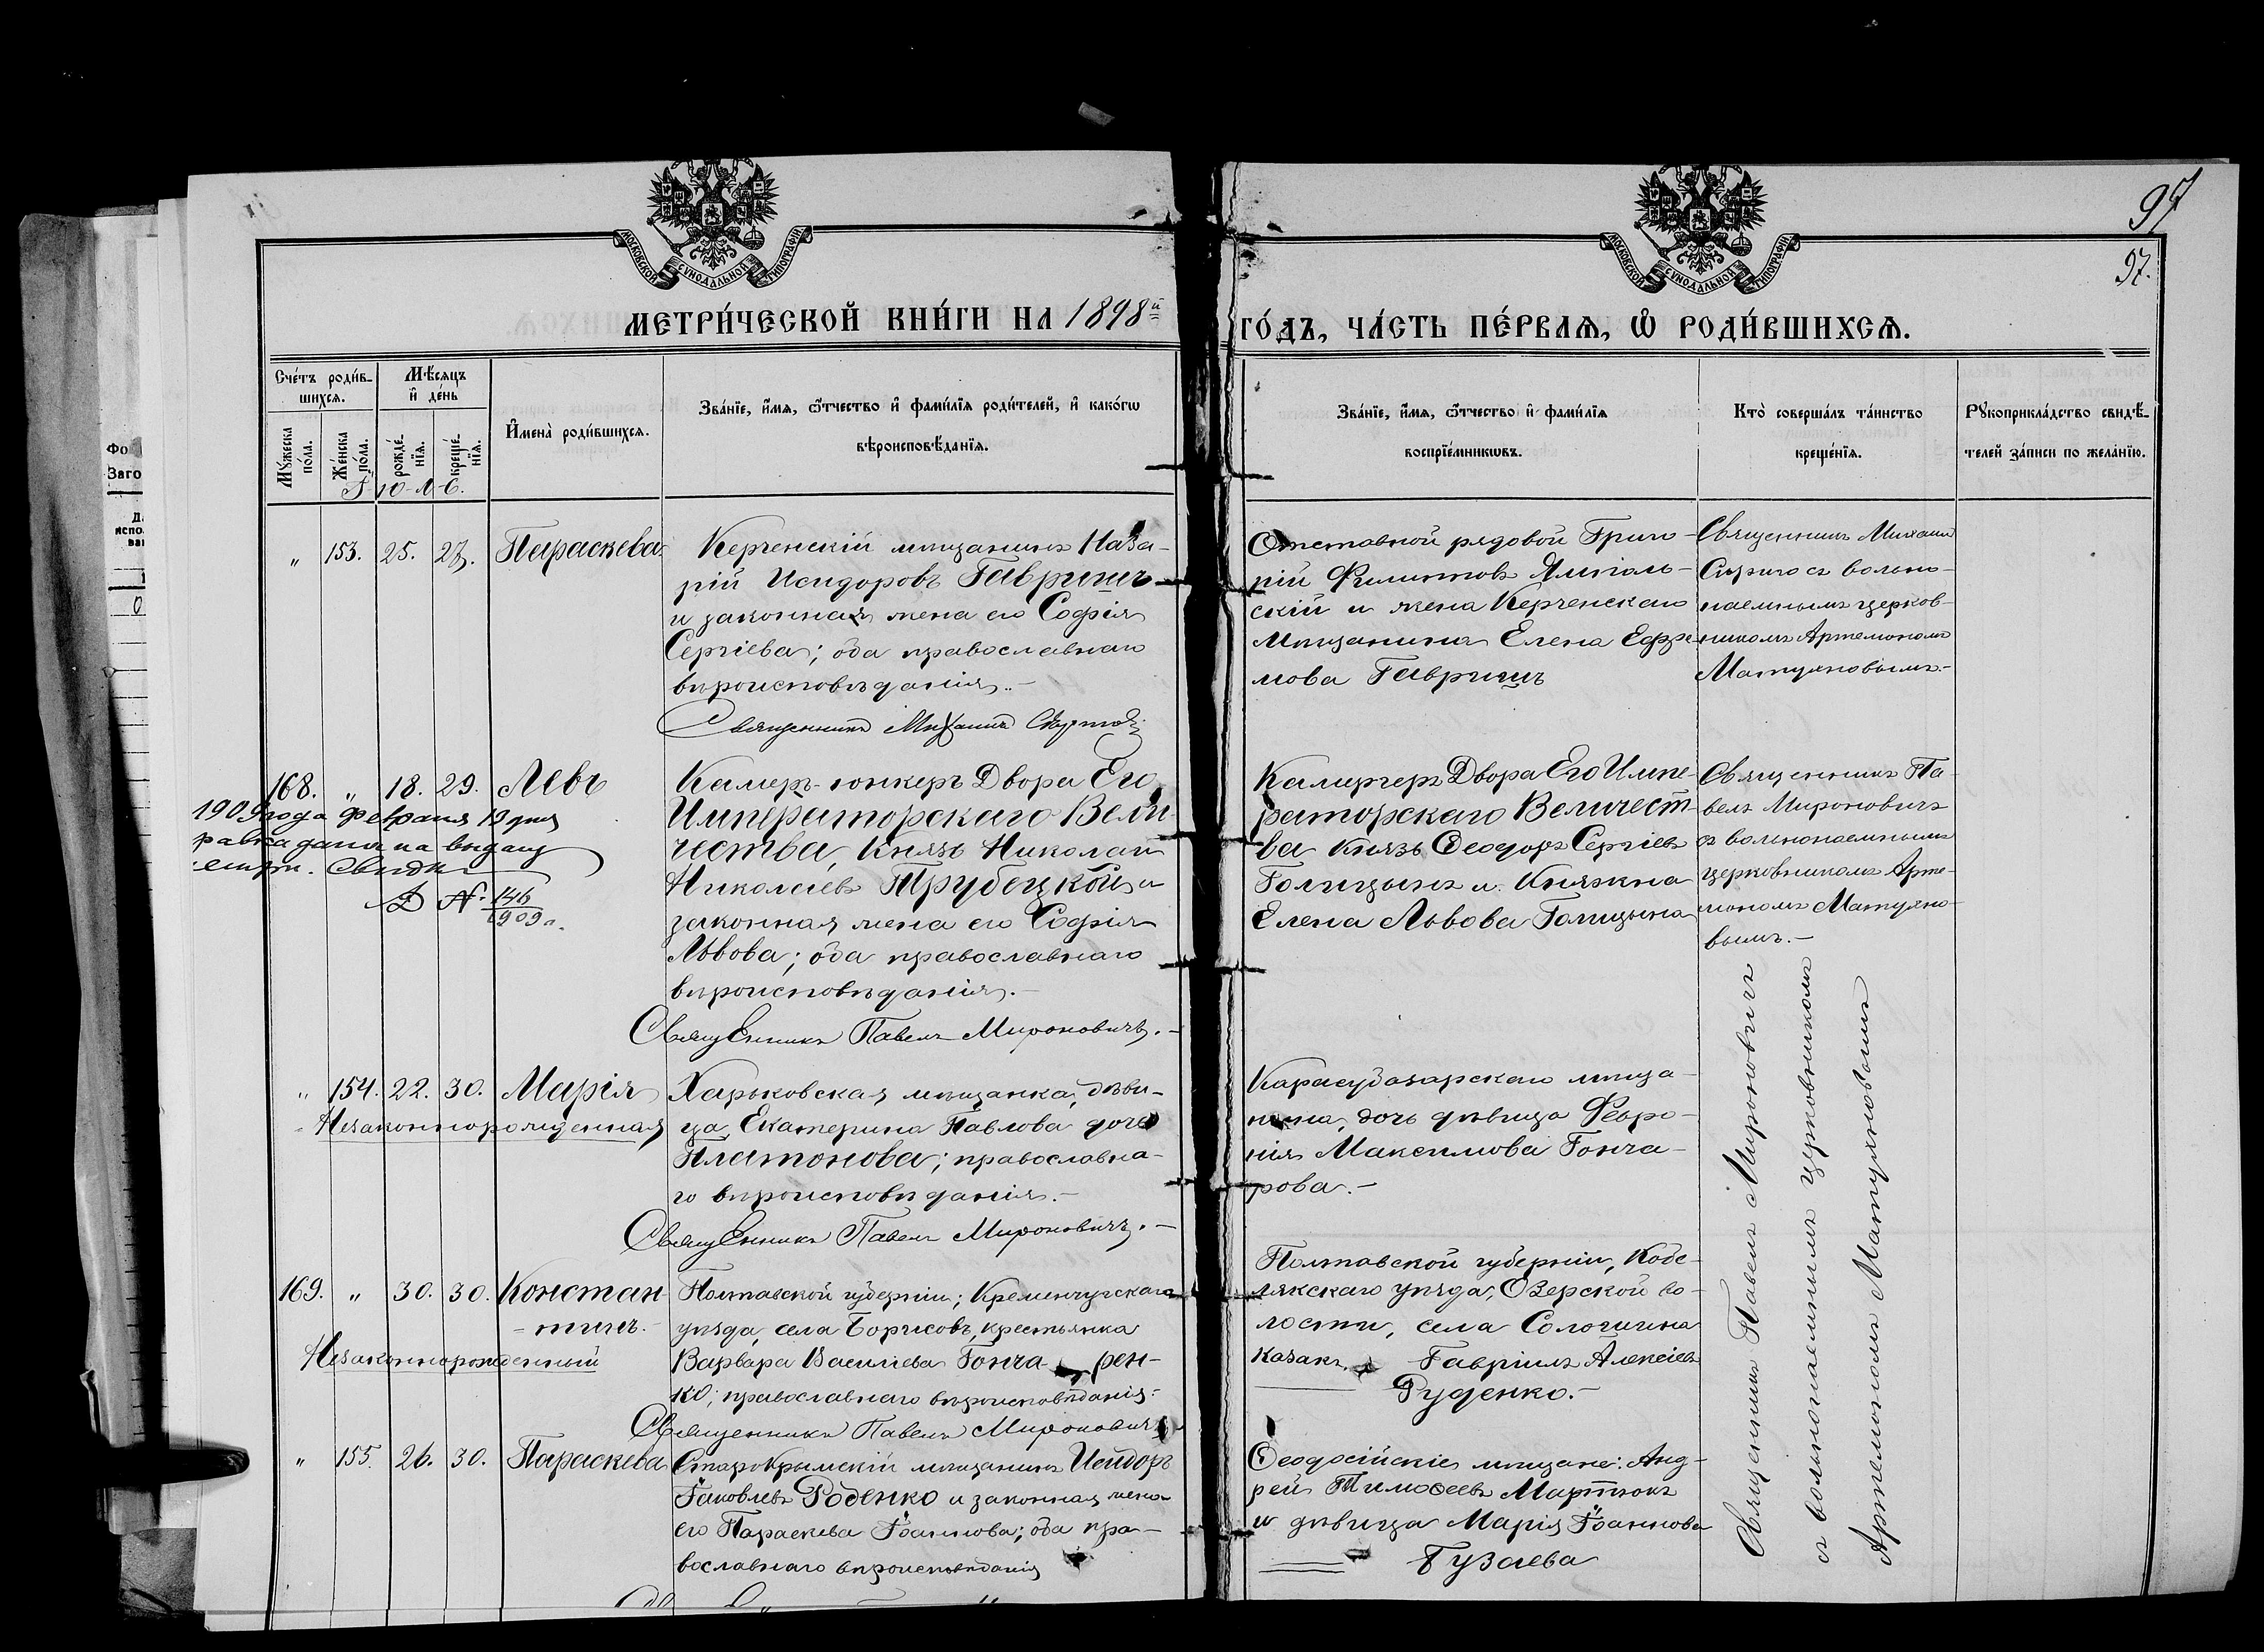 МОСКОВСКОЙ СѴНОДАЛЬНОЙ ТИПОГРАФІИ
МОСКОВСКОЙ СѴНОДАЛЬНОЙ ТИПОГРАФІИ
97
97.
МЕТРИ́ЧЕСКОЙ КНИ́ГИ НА 1898й ГО́ДЪ, ЧА́СТЬ ПЕ́РВАѦ, Ѡ РОДИ́ВШИХСѦ.
Счéтъ роди́в-
шихсѧ.
Мꙋжеска пóла.
Жéнска пóла.
Мѣ́сѧцъ
и҆ дéнь
рождé-
нїѧ.
крещé-
нїѧ.
И҆менà роди́вшихсѧ.
Звáнїе, и҆́мѧ, ѻ҆́тчество и҆ фами́лїѧ роди́телей, и҆ какóгѡ
вѣроисповѣ́данїѧ.
Звáнїе, и҆́мѧ, ѻ҆́тчество и҆ фами́лїѧ
воспрїéмникѡвъ.
Ктò совершáлъ тáинство
крещéнїѧ.
Рꙋкоприклáдство свидѣ́-
телей зáписи по желáнїю.
І-ю-л-ь.
„ 153. 25. 27. Параскева.
Керченскій мѣщанинъ Наза-
рій Исидоровъ Гавришъ
и законная жена его Софія
Сергіева; оба православнаго
вѣроисповѣданія.-
Священникъ Михаилъ
Отставной рядовой Григо-
рій Филиповъ Ямполь-
скій и жена Керченскаго
мѣщанина Елена Ефре-
мова Гавришъ
Священникъ Михаилъ
съ вольно-
наемнымъ церков-
никомъ Артемономъ
Матуяновымъ.-
168. „ 18. 29. Левъ
1909 года февраля 19 дня
равка дана на выдачу
метри. Свидки
Д №. 146
1909 г.
Камеръ-юнкеръ Двора Его
Императорскаго Вели-
чества, Князь Николай
Николаевъ Трубецкой и
законная жена его Софія
Львова; оба православнаго
вѣроисповѣданія.-
Священникъ Павелъ Мироновичъ.-
Камергеръ Двора Его Импе-
раторскаго Величест-
ва князь Ѳеодоръ Сергіевъ
Голицынъ и Княжна
Елена Львова Голицына
Священникъ Па-
велъ Мироновичъ
съ вольнонаемнымъ
церковникомъ Арте-
мономъ Матуяно-
вымъ.-
„ 154. 22. 30. Марія
Незаконнорожденная
Харьковская мѣщанка, дѣви-
ца, Екатерина Павлова дочь
Платонова; православна-
го вѣроисповѣданія.-
Священникъ Павелъ Мироновичъ.-
Карасубазарскаго мѣща-
нина, дочь дѣвица Февро-
нія Максимова Гонча-
рова.-
169. „ 30. 30. Констан-
-тинъ.-
Незаконнорожденный
Полтавской губерніи, Кременчугскаго
уѣзда, села Борисовъ, крестьянка
Варвара Василіева Гонча рен-
ко; православнаго вѣроисповѣданія.-
Священникъ Павелъ Мироновичъ
Полтавской губерніи, Кобе-
лякскаго уѣзда, Озерской во-
лости, села Сологинина
казакъ, Гавріилъ Алексіевъ
Руденко.-
„ 155. 26. 30. Параскева
Старокрымскій мѣщанинъ Исидоръ
Іаковлевъ Роденко и законная жена
его Параскева Іоаннова; оба пра-
вославнаго вѣроисповѣданія
Ѳеодосійскіе мѣщане: Анд-
рей Тимоѳеевъ Мартюкъ
и дѣвица Марія Іоаннова
Гузаева
Священникъ Павелъ Мироновичъ
съ вольнонаемнымъ церковникомъ
Артемономъ Матуяновымъ